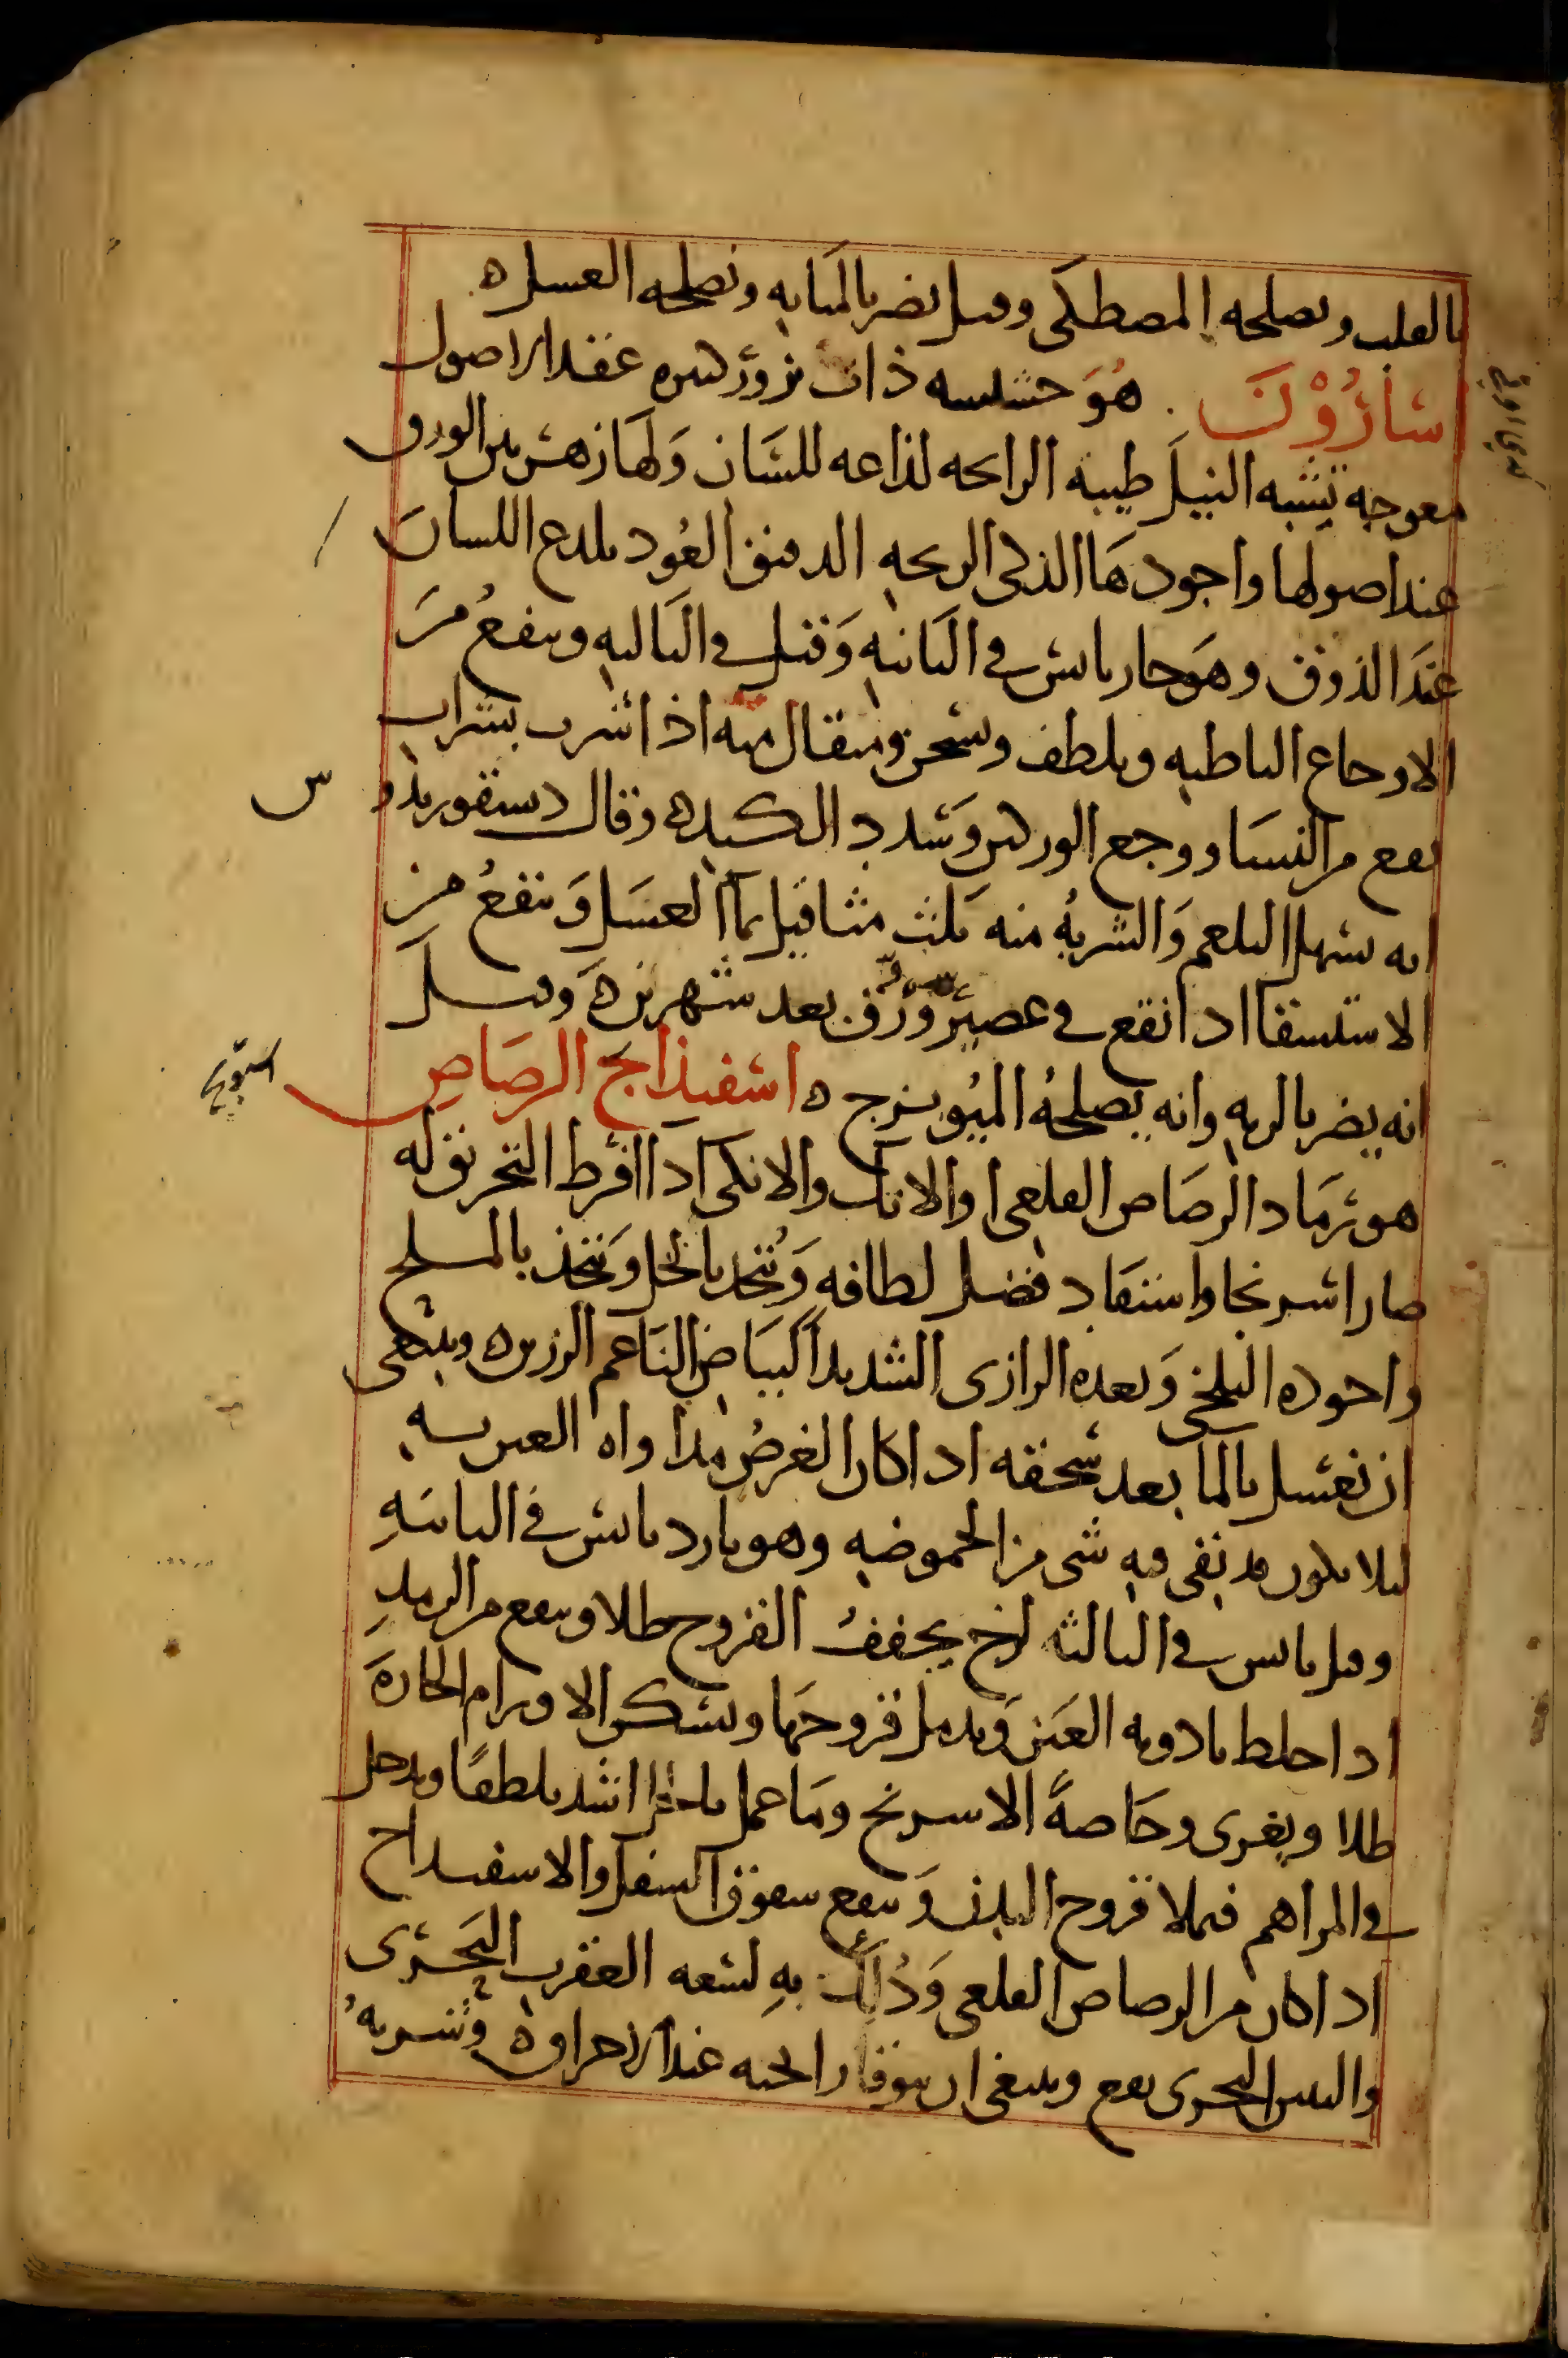 بالقلب ويصلحه المصطكى وقيل يضر بالمثانه ويصلحه العسل ه
اسارون هو حشيشه ذات بزور كثيره عقد الاصول
معوجه تشبه النيل طيبه الرايحه لذاعه للسان ولها زهر بين الورق
عند اصولها واجودها الذكى الريحه الدقيق العود يلدع اللسان
عند الذوق وهو حار يابس في الثانيه وقيل في الثالثه وينفع من
الاوجاع الباطنه ويلطف ويسخن ومثقال منه اذا شرب بشراب
نفع من النسا ووجع الوركين وسدد الكبد ه وقال دسقوريدوس
انه يسهل البلغم والشربه منه ثلث مثاقيل بما العسل وينفع من
الاستسقا اذا نقع في عصير ورق بعد شهرين ه وقيل
انه يضر بالريه وانه يصلحه الميويزج ه اسفيذاج الرصاص
هو رماد الرصاص القلعى او الانك والانكى اذا افرط التحريق له
صار اسرنجا واستفاد فضل لطافه ويتخد بالخل ويتخذ بالملح
واجوده البلخى وبعده الرازى الشديد البياض الناعم الرزين ه وينبغى
ان يغسل بالما بعد سحقه اذا كان الغرض مداواه العين به
ليلا يكون قد بقى فيه شى من الحموضه وهو بارد يابس في الثانيه
وقيل يابس في الثالثه يجفف القروح طلا وينفع من الرمد
اذا خلط بادويه العين ويدمل قروحها ويسكن الاورام الحاره
طلا ويغرى وخاصه الاسرنج وما عمل بالخل اشد تلطفا ويدخل
في المراهم فيملا قروح البدن وينفع شقوق السفل والاسفيداج
اذا كان من الرصاص القلعى ودلك به لسعه العقرب البحرى
والتنين البحرى نفع وينبغى ان يتوقا رايحته عند احراقه ه وشربه